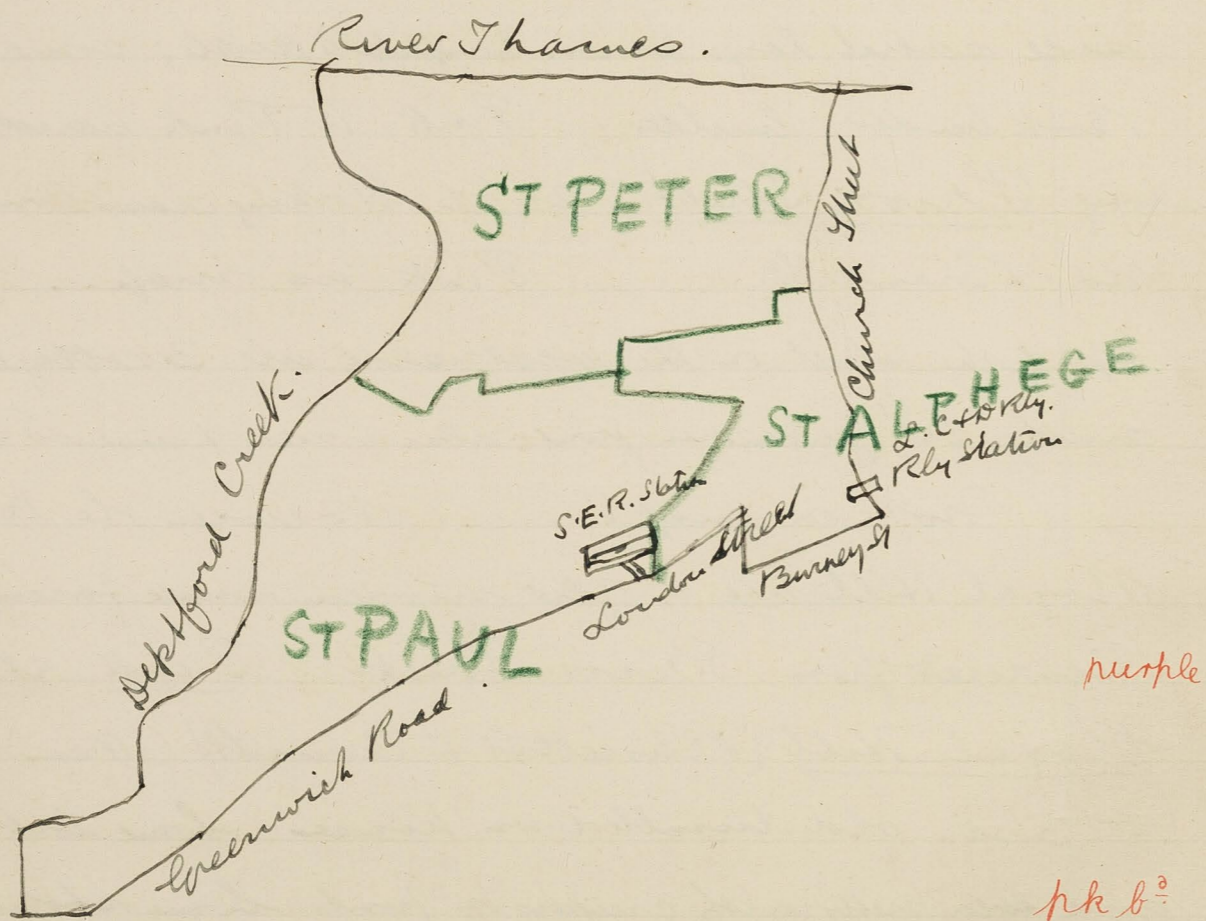 River Thames.
ST PETER
Church Street
Deptford Creek.
ST ALPHEGE
L.C & D Rly.
Rly Station
S.E.R. Station
London Street
Burney St
ST PAUL
Greenwich Road.
purple
pk